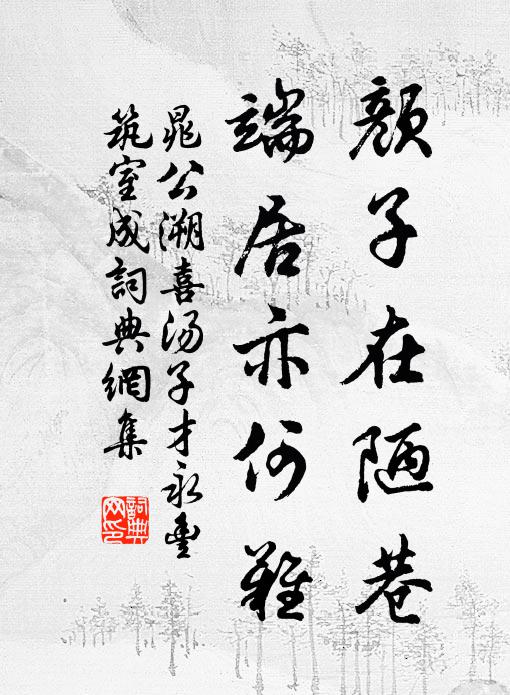 颜子在陋巷
端居亦何难
晁公溯喜汤子才永丰
筑室成词典網集
詞典网印